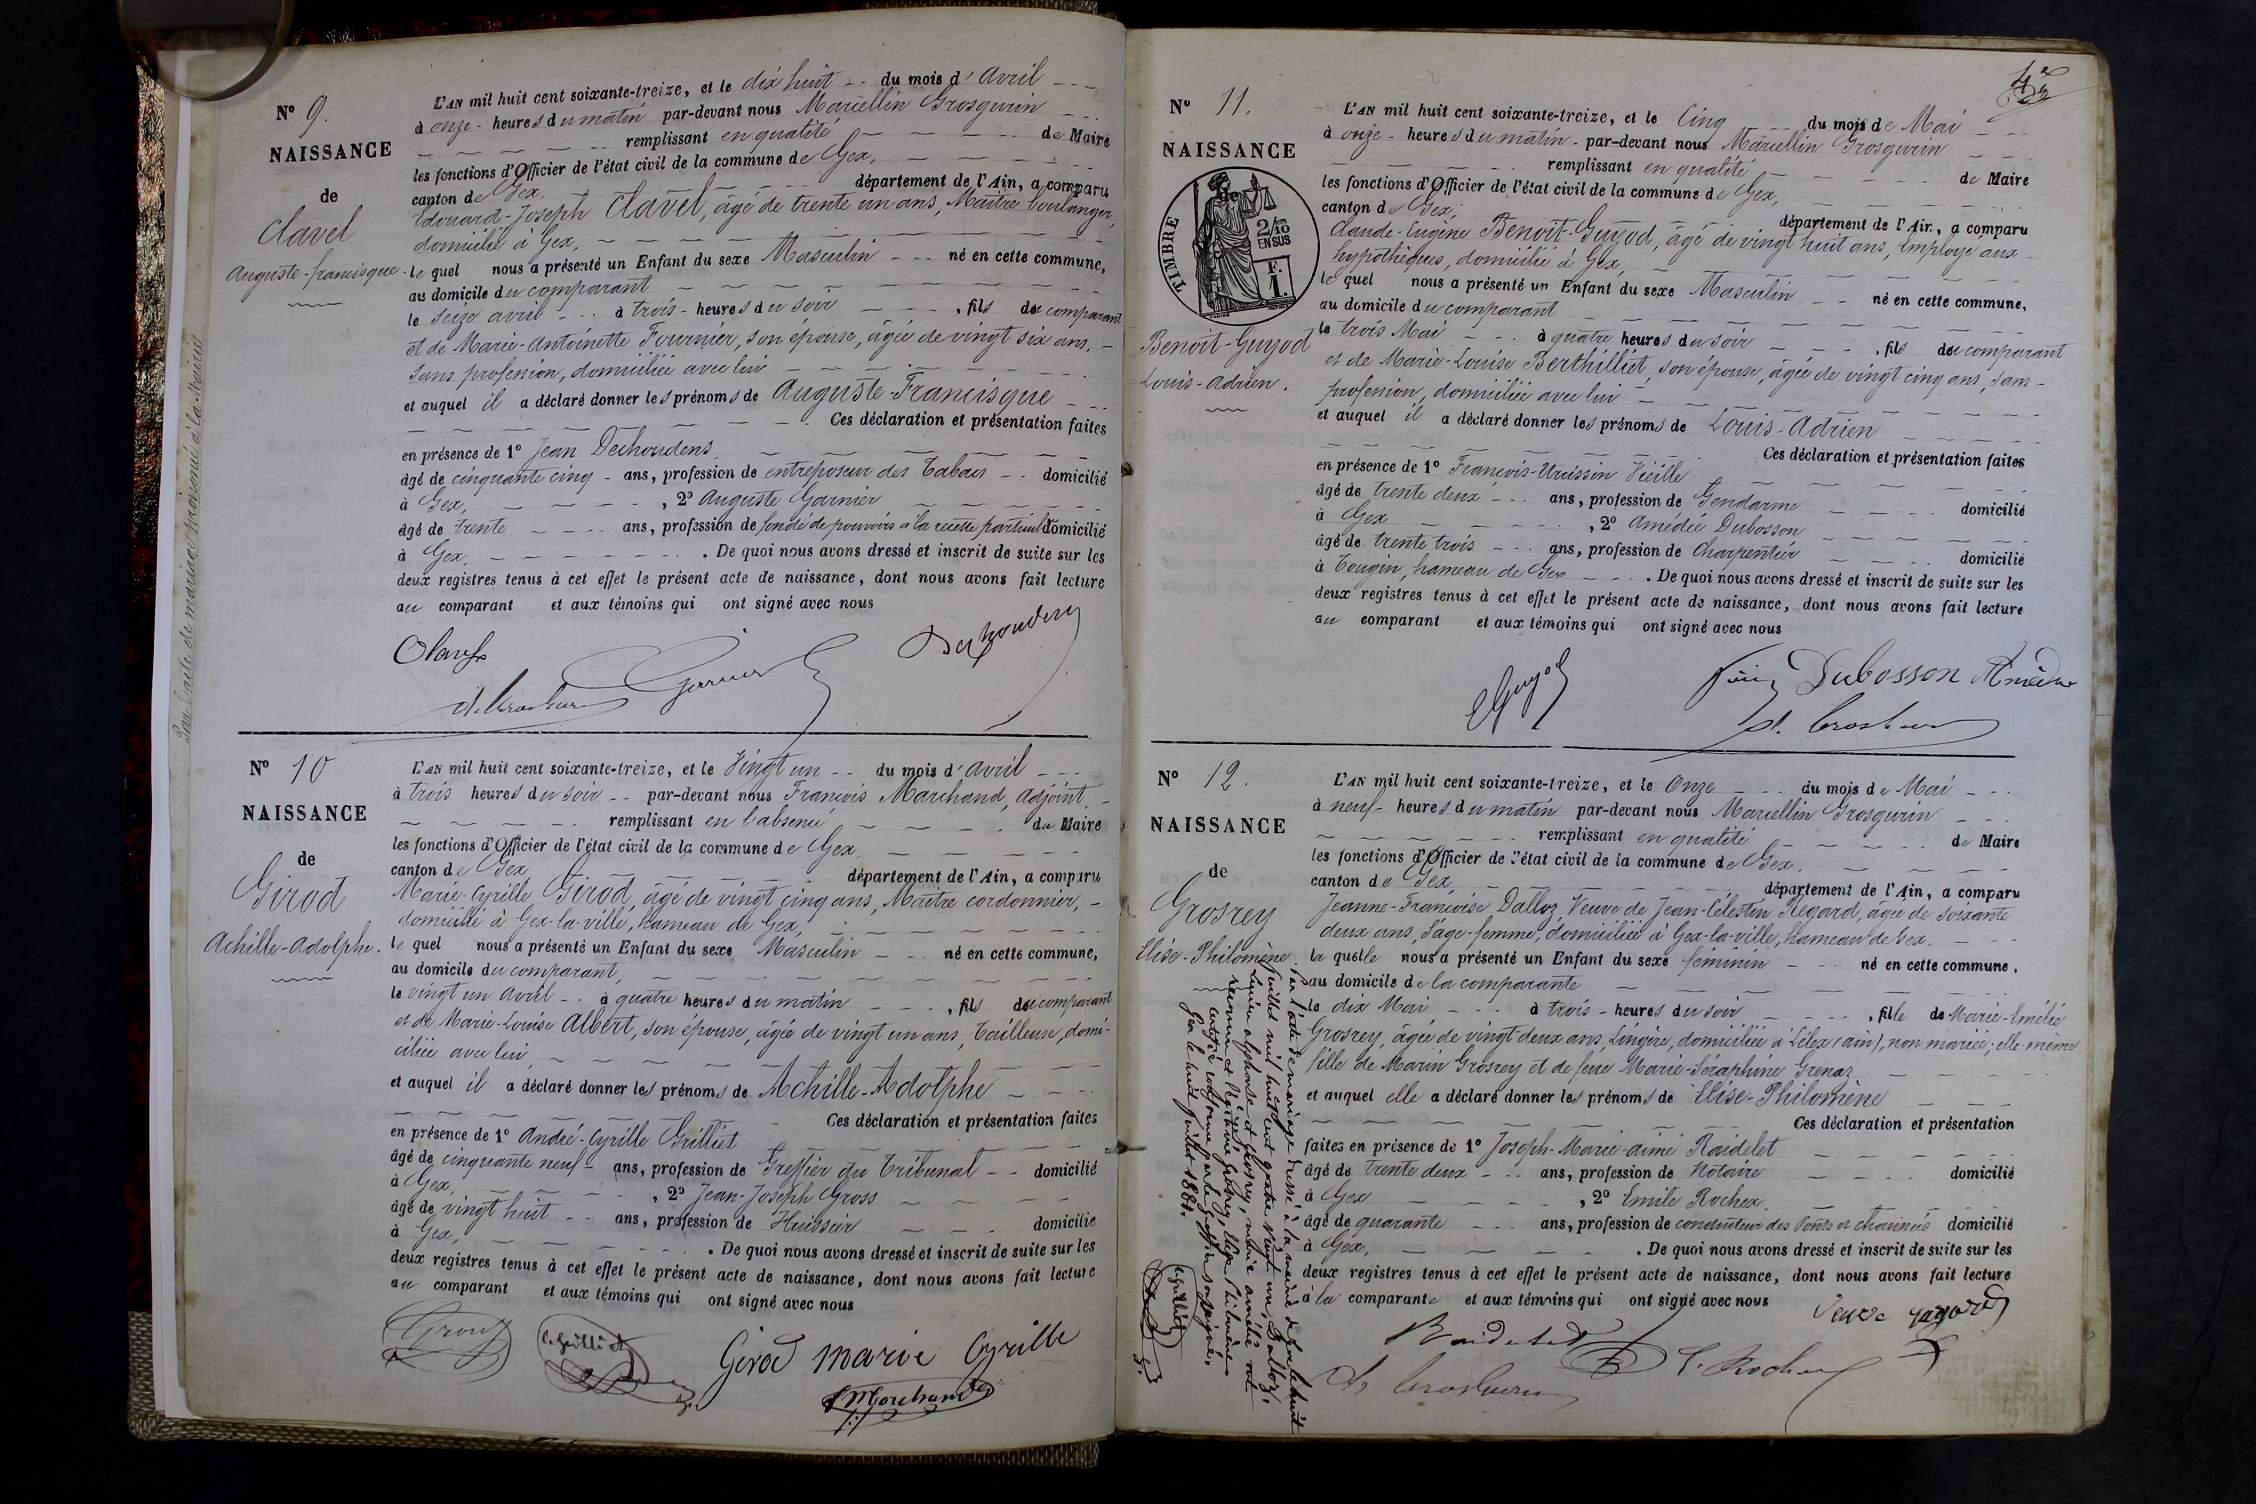 Nº 9.
NAISSANCE
de
Clavel
Auguste-francisque.
L'AN mil huit cent soixante-treize, et le dix huit du mois d'Avril
à onze heures du matin par-devant nous Marcellin Grosgurin
remplissant en qualité de Maire
les fonctions d'Officier de l'état civil de la commune de Gex,
canton de Gex. département de l'Ain, a comparu
Edouard-Joseph Clavel, âgé de trente un ans, Maître boulanger,
domicilié à Gex,
le quel nous a présenté un Enfant du sexe Masculin né en cette commune,
au domicile du comparant
le seize avril à trois heures du soir, fils du comparant
et de Marie-Antoinette Fournier, son épouse, âgée de vingt six ans,
sans profession, domiciliée avec lui
et auquel il a déclaré donner les prénoms de Auguste-Francisque
Ces déclaration et présentation faites
en présence de 1º Jean Dechoudens,
âgé de cinquante cinq ans, profession de entreposeur des Tabacs domicilié
à Gex, , 2º Auguste Garnier
âgé de trente ans, profession de fondé de pouvoirs à la recette particulière domicilié
à Gex. . De quoi nous avons dressé et inscrit de suite sur les
deux registres tenus à cet effet le présent acte de naissance, dont nous avons fait lecture
au comparant et aux témoins qui ont signé avec nous
Clavel
Dechoudens
Garnier
Nº 10
NAISSANCE
de
Girod
Achille-Adolphe.
L'AN mil huit cent soixante-treize, et le Vingt un du mois d'avril
à trois heures du soir par-devant nous François Marchand, Adjoint,
remplissant en l'absence du Maire
les fonctions d'Officier de l'état civil de la commune de Gex,
canton de Gex département de l'Ain, a comparu
Marie-Cyrille Girod, âgé de vingt cinq ans, Maître cordonnier,
domicilié à Gex-la-ville, hameau de Gex,
le quel nous a présenté un Enfant du sexe Masculin né en cette commune,
au domicile du comparant,
le vingt un Avril à quatre heures du matin, fils du comparant
et de Marie-Louise Albert, son épouse, âgée de vingt un ans, Tailleuse, domi-
ciliée avec lui
et auquel il a déclaré donner les prénoms de Achille-Adolphe
Ces déclaration et présentation faites
en présence de 1º André-Cyrille Grilliet
âgé de cinquante neuf ans, profession de Greffier du Tribunal domicilié
à Gex, , 2º Jean-Joseph Gross
âgé de vingt huit ans, profession de Huissier domicilié
à Gex, . De quoi nous avons dressé et inscrit de suite sur les
deux registres tenus à cet effet le présent acte de naissance, dont nous avons fait lecture
au comparant et aux témoins qui ont signé avec nous
Gross
C. Grilliet
Girod marie Cyrille
f Marchand
Nº 11.
NAISSANCE
de
TIMBRE
2/10
EN SUS
F.
1.
Benoit-Guyod
Louis-Adrien.
L'AN mil huit cent soixante-treize, et le Cinq du mois de Mai
à onze heures du matin par-devant nous Marcellin Grosgurin
remplissant en qualité de Maire
les fonctions d'Officier de l'état civil de la commune de Gex,
canton de Gex, département de l'Ain, a comparu
Claude-Eugène Benoit-Guyod, âgé de vingt huit ans, Employé aux
hypothèques, domicilié à Gex,
le quel nous a présenté un Enfant du sexe Masculin né en cette commune,
au domicile du comparant
le trois Mai à quatre heures du soir, fils du comparant
et de Marie-Louise Berthilliet, son épouse, âgée de vingt cinq ans, sans
profession, domiciliée avec lui
et auquel il a déclaré donner les prénoms de Louis-Adrien
Ces déclaration et présentation faites
en présence de 1º François-Ursissin Vieille
âgé de trente deux ans, profession de Gendarme domicilié
à Gex , 2º Amédée Dubosson
âgé de trente trois ans, profession de Charpentier domicilié
à Tougin, hameau de Gex . De quoi nous avons dressé et inscrit de suite sur les
deux registres tenus à cet effet le présent acte de naissance, dont nous avons fait lecture
au comparant et aux témoins qui ont signé avec nous
Guyod
Dubosson Amédée
Nº 12.
NAISSANCE
de
Grosrey
Elise-Philomène.
L'AN mil huit cent soixante-treize, et le Onze du mois de Mai
à neuf heures du matin par-devant nous Marcellin Grosgurin
remplissant en qualité de Maire
les fonctions d'Officier de l'état civil de la commune de Gex.
canton de Gex département de l'Ain, a comparu
Jeanne-Françoise Dalloz, Veuve de Jean-Célestin Regard, âgée de soixante
deux ans, Sage-femme, domiciliée à Gex-la-ville, hameau de Gex.
la quelle nous a présenté un Enfant du sexe féminin né en cette commune,
au domicile de la comparante
le dix Mai à trois heures du soir, fille de Marie-Emélie
Grosrey, âgée de vingt deux ans, Lingère, domiciliée à Lélex (ain), non mariée; elle-même
fille de Marin Grosrey et de feue Marie-Séraphine Grenaz
et auquel elle a déclaré donner les prénoms de Elise-Philomène
Ces déclaration et présentation
faites en présence de 1º Joseph-Marie-aimé Raidelet
âgé de trente deux ans, profession de Notaire domicilié
à Gex , 2º Emile Rochex
âgé de quarante ans, profession de conducteur des Ponts et chaussées domicilié
à Gex, . De quoi nous avons dressé et inscrit de suite sur les
deux registres tenus à cet effet le présent acte de naissance, dont nous avons fait lecture
à la comparante et aux témoins qui ont signé avec nous
Veuve regard
Raidelet
E. Rochex
Par l'acte de mariage dressé à la mairie de Gex le huit
Juillet mil huit cent quatre vingt un, Dalloz,
alphonse et Grosrey, marie amélie ont
reconnu et légitimé Grosrey, Elise Philomène
Certifié conforme par le greffier soussigné,
Gex le huit Juillet 1881.
C. Grilliet
Par l'acte de mariage mentionné à la Mairie